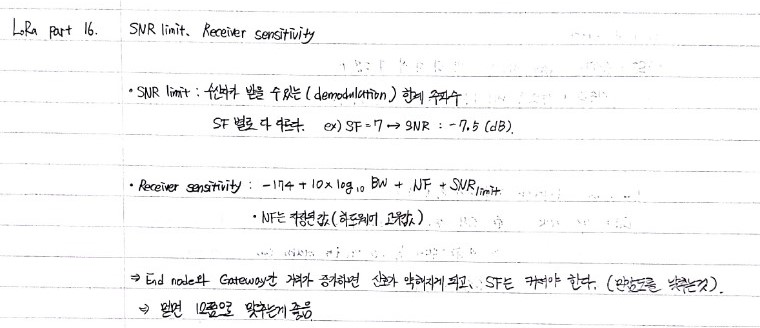 LoRa part 16. SNR limit, Receiver sensitivity
• SNR limit : 수신기가 받을 수 있는 (demodulation) 한계 주파수
SF 별로 다 다르다. ex) SF = 7 ↔ SNR : -7.5 (dB).
• Receiver sensitivity : -174 + 10 × log₁₀ BW + NF + SNR limit.
• NF는 측정된 값 (하드웨어 고유값)
⇒ End node와 Gateway간 거리가 증가하면 신호가 약해지게 되고, SF는 커져야 한다. (민감도를 낮추는것).
⇒ 멀면 12쯤으로 맞추는게 좋음